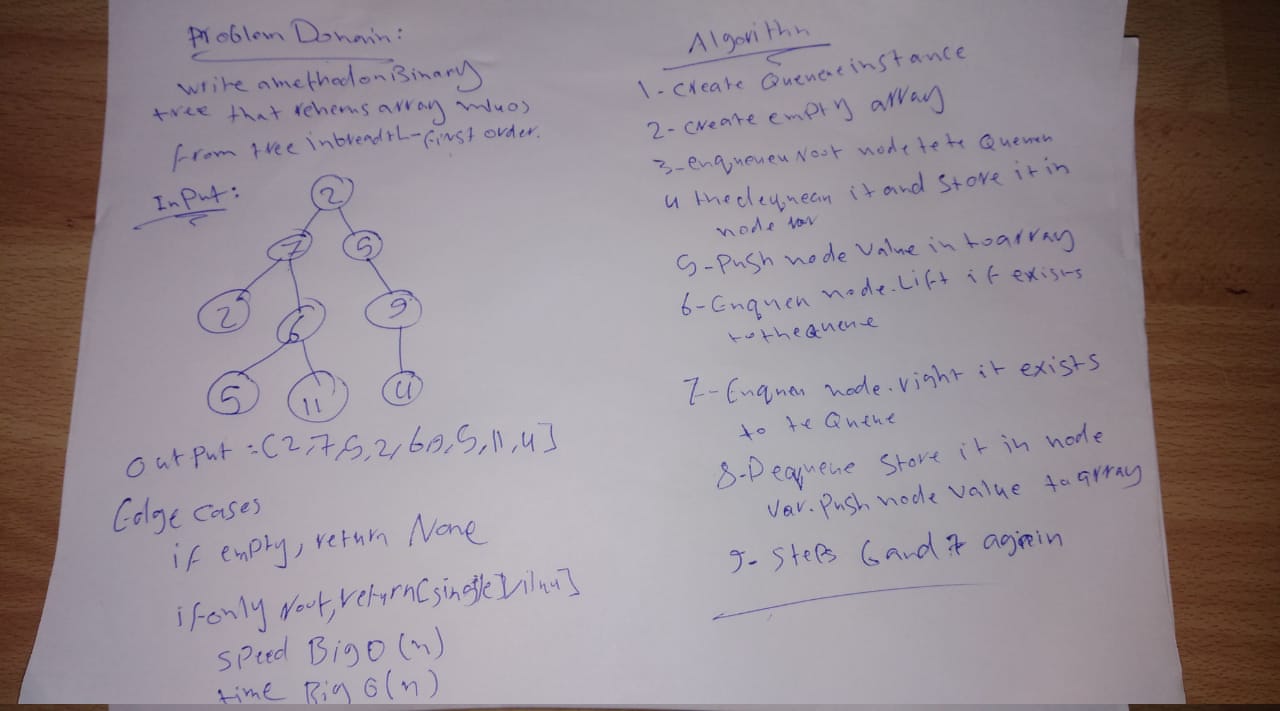 Problem Domain:
write a method on Binary
tree that reherns array
from tree in breadth-first order.
Input:
2
7 5
2 6 9
5 11 4
output = [2,7,5,2,6,9,5,11,4]
Edge cases
if empty, return None
if only root, return [single
speed Big O (n)
time Big O (n)
Algorithn
1- create Queneue instance
2- create empty array
3- enqueueu Root node to te Queueu
4 the dequeau it and store it in
node var
5- Push node value in to array
6- Enquen node.Lift if exists
to the queue
7- Enquen node.right it exists
to te Queue
8- Dequeue store it in node
Var. Push node value to array
9- steps 6 and 7 again